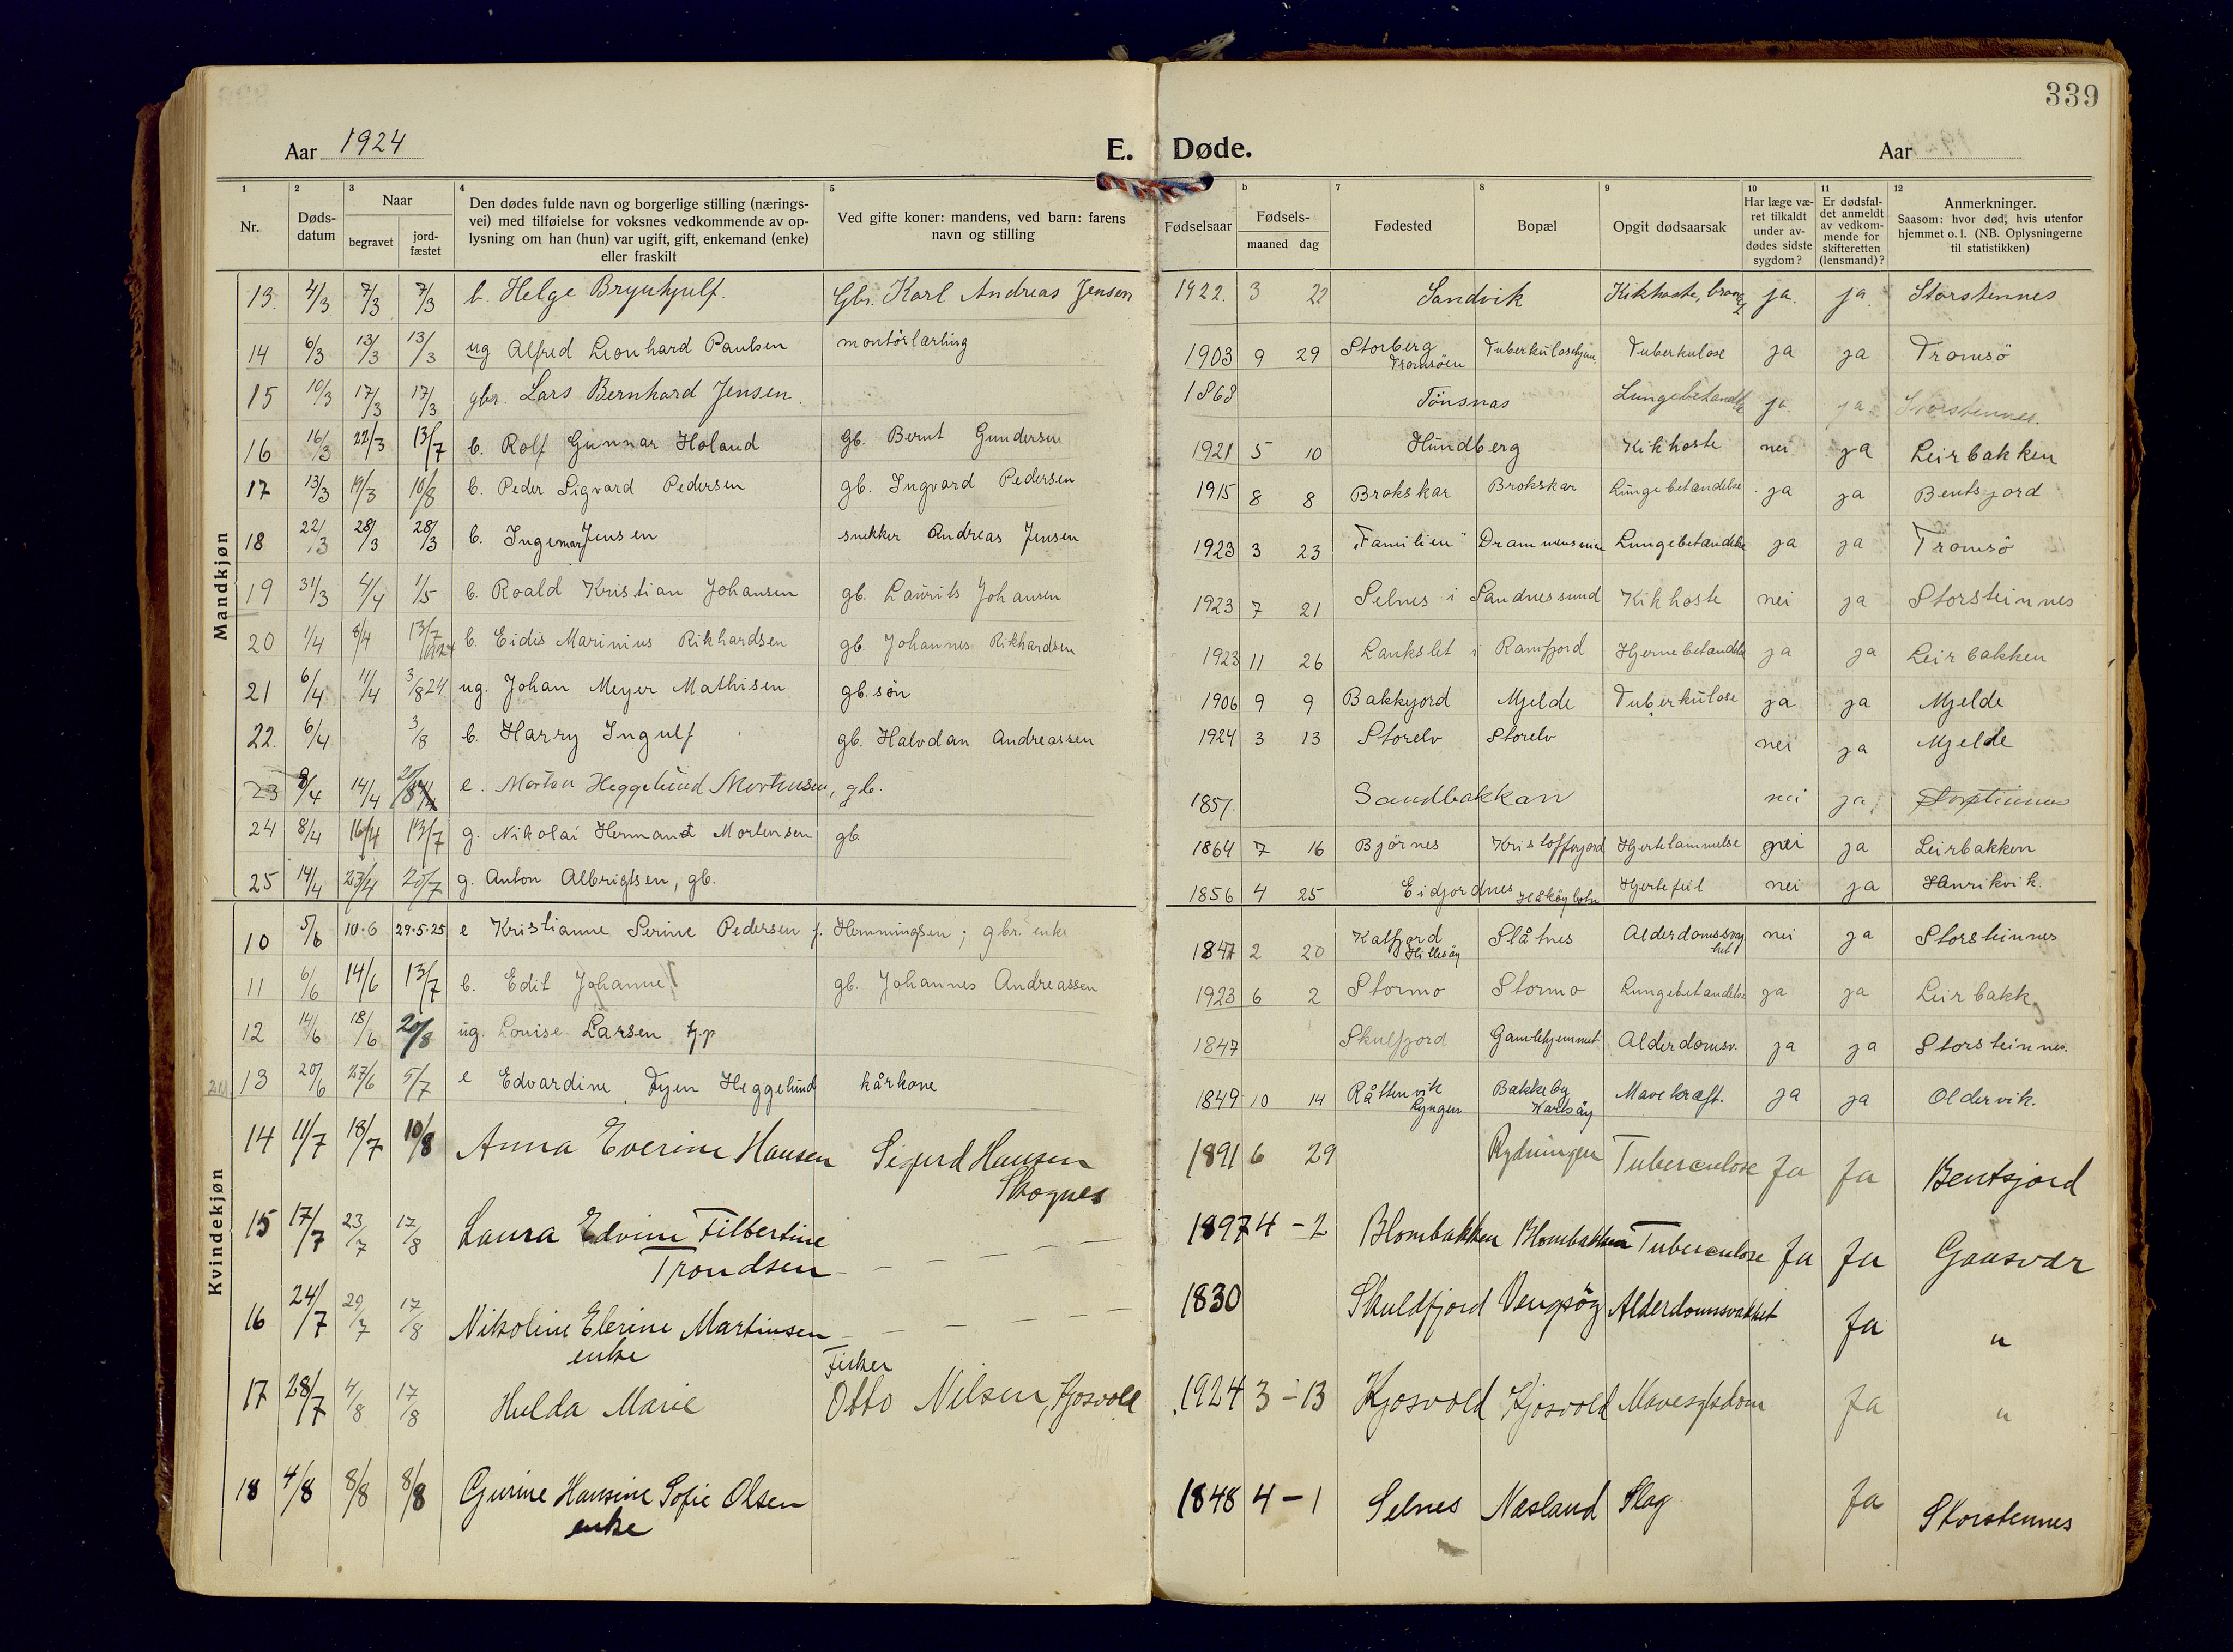 339
Aar 1924 E. Døde. Aar
1 2 3 4 5 6 7 8 9 10 11 12
Nr. Døds-datum Naar begravet jord-fæstet Den dødes fulde navn og borgerlige stilling (nærings-vei) med tilføielse for voksnes vedkommende av op-lysning om han (hun) var ugift, gift, enkemand (enke) eller fraskilt Ved gifte koner: mandens, ved barn: farens navn og stilling Fødselsaar Fødsels- maaned dag Fødested Bopæl Opgit dødsaarsak Har læge væ-ret tilkaldt under av-dødes sidste sygdom? Er dødsfal-det anmeldt av vedkom-mende for skifteretten (lensmand)? Anmerkninger. Saasom: hvor død, hvis utenfor hjemmet o. l. (NB. Oplysningerne til statistikken)
Mandkjøn
13. 4/3 7/3 7/3 b. Helge Brynhjulf. Gbr. Karl Andreas Jensen 1922. 3 22 Sandvik Kikhoste, ja. ja. Storstennes
14 6/3 13/3 13/3 ug Alfred Leonhard Paulsen montörlærling 1903 9 29 Storberg Tromsöen Tuberkulosehjem Tuberkulose ja ja Tromsö
15 10/3 17/3 17/3 gbr. Lars Bernhard Jensen. 1868 Tönsnas Lungebetændelse ja. ja. Storstennes.
16 16/3 22/3 13/7 b. Rolf Gunnar Holand gb. Bernt Gundersen 1921 5 10 Hundberg Kikhoste nei ja Leirbakken
17 13/3 19/3 10/8 b. Peder Sigvard Pedersen gb. Ingvard Pedersen 1915 8 8 Brokskar Brokskar Lungebetændelse ja ja Bentsjord
18 22/3 28/3 28/3 b. Ingemar Jensen snekker Andreas Jensen 1923 3 23 "Familien" Lungebetændelse ja ja Tromsö
19 31/3 4/4 1/5 b. Roald Kristian Johansen gb. Laurits Johansen 1923 7 21 Selnes i Sandnessund Kikhoste nei ja Storsteinnes
20 1/4 8/4 13/7 1924 b. Eidis Marinius Rikhardsen gb. Johannes Rikhardsen 1923 11 26 Lankslet i Ramfjord Hjernebetændelse ja ja Leirbakken
21 6/4 11/4 3/8 24 ug. Johan Meyer Mathisen gb. sön 1906 9 9 Bakkejord Mjelde Tuberkulose ja ja Mjelde
22. 6/4 3/8 b. Harry Ingulf gb. Halvdan Andreassen 1924 3 13 Storelv Storelv nei ja Mjelde
23 9/4 14/4 e. Morten Heggelund Mortensen, gb. 1857. Sandbakkan nei ja
24 8/4 16/4 13/7 g. Nikolai Hermand Mortensen gb 1864 7 16 Björnes Kristofferjord Hjertelammelse nei ja Leirbakken
25 14/4 23/4 20/7 g. Anton Albrigtsen, gb. 1856 4 25 Eidjordnes Håköybotn Hjertefeil nei ja Henrikvik.
Kvindekjøn
10 5/6 10.6 29.5.25 e Kristianne Serine Pedersen f. Hemmingsen; gbr. enke 1847 2 20 Kalfjord Hillesöy Slåtnes Alderdomssvaghet nei ja Storsteinnes
11 6/6 14/6 13/7 b. Edit Johanne gb. Johannes Andreassen 1923 6 2 Stormo Stormo Lungebetændelse ja ja Leirbakk
12 14/6 18/6 20/8 ug. Louise Larsen fj.p 1847 Skulfjord Gamlehjemmet Alderdomsv. ja ja Storsteinnes.
13 20/6 27/6 5/7 e Edvardine Fyen Heggelund kårkone 1849 10 14 Råttenvik Lyngen Bakkeby Karlsöy Mavekræft. ja ja Oldervik.
14 11/7 18/7 10/8 Anna Everine Hansen Sigurd Hansen Skognes 1891 6 29 Rydningen Tuberculose Ja Ja Bentsjord
15 17/7 23/7 17/8 Laura Edvine Filbertine Trondsen 1897 4 - 2 Blombakken Blombakken Tuberculose Ja Ja Gaasvær
16 24/7 29/7 17/8 Nikoline Elerine Martinsen enke 1830 Skuldfjord Vengsöy Alderdomssvakhet Ja "
17 28/7 4/8 17/8 Hulda Marie Fisker Otto Nilsen, Kjosvold 1924 3 - 13 Kjosvold Kjosvold Mavesygdom Ja "
18 4/8 8/8 8/8 Gjurine Hansine Sofie Olsen enke 1848 4 - 1 Selnes Næsland Slag Ja Storstennes